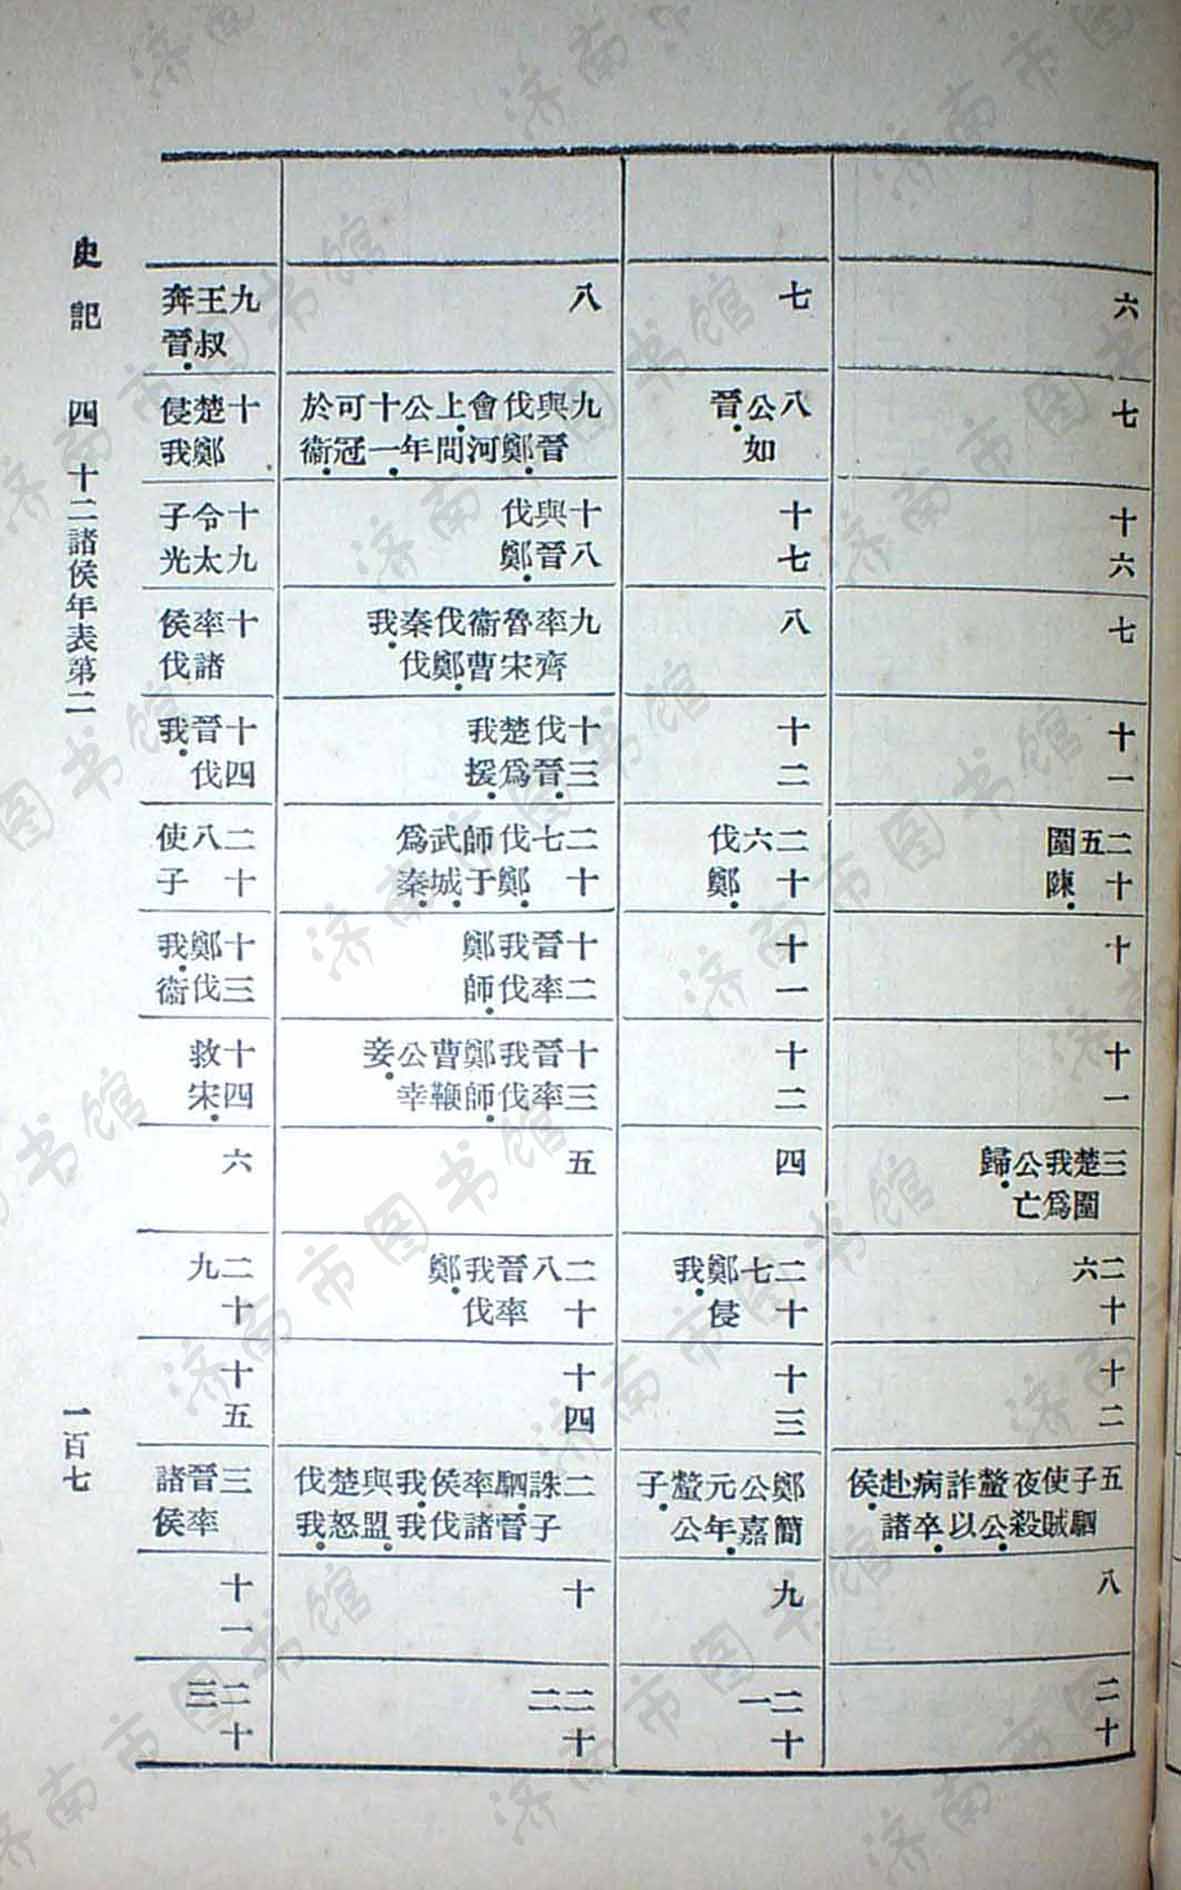 六
七
十六
七
十一
二十五圍陳
十
十一
三楚圍我爲公亡歸
二十六
十二
五子駟使賊夜殺釐公詐以病卒赴諸侯
八
二十
七
八公如晉
十七
八
十二
二十六伐鄭
十一
十二
四
二十七鄭侵我
十三
鄭簡公嘉元年釐公子
九
二十一
八
九與晉伐鄭會河上問公年十一可冠於衞
十八與晉伐鄭
九率齊魯宋衞曹伐鄭秦伐我
十三伐晉楚爲我援
二十七伐鄭師于武城爲秦
十二晉率我伐鄭師
十三晉率我伐鄭師曹鞭公幸妾
五
二十八晉率我伐鄭
十四
二誅子駟晉率諸侯伐我我與盟楚怒伐我
十
二十二
九王叔奔晉
十楚鄭侵我
十九令太子光
十率諸侯伐
十四晉伐我
二十八使子
十三鄭伐我衞
十四救宋
六
二十九
十五
三晉率諸侯
十一
二十三
史記 四 十二諸侯年表第二 一百七